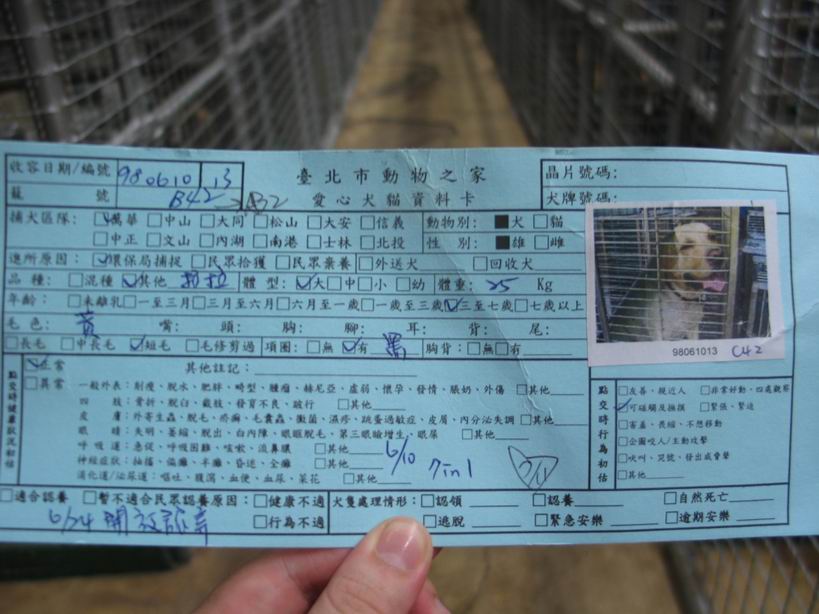 收容日期/編號 980610 13 臺北市動物之家 晶片號碼:
號 B42 愛心犬貓資料卡 犬牌號碼:
捕犬區隊: ☑萬華 □中山 □大同 □松山 □大安 □信義 動物別: ■犬 □貓
□中正 □文山 □內湖 □南港 □士林 □北投 性 別: ■雄 □雌
進所原因: ☑環保局捕捉 □民眾拾獲 □民眾棄養 □外送犬 □回收犬
品 種: □混種 ☑其他 拉拉 體 型: ☑大 □中 □小 □幼 體重: 25 Kg
年齡: □未離乳 □一至三月 □三月至六月 □六月至一歲 □一歲至三歲 ☑三至七歲 □七歲以上
毛 色: 黃 嘴: 頭: 胸: 腳: 耳: 背: 尾:
□長毛 □中長毛 ☑短毛 □毛修剪過 項圈: □無 ☑有 黑 胸背: □無 □有
98061013 C42
點交時健康狀況初估
☑正常 其他註記:
□異常 一般外表: 削瘦、脫水、肥胖、畸型、腫瘤、赫尼亞、虛弱、懷孕、發情、脹奶、外傷 □其他
四 肢: 骨折、脫臼、截肢、發育不良、跛行 □其他
皮 膚: 外寄生蟲、脫毛、疥癬、毛囊蟲、黴菌、濕疹、跳蚤過敏症、皮屑、內分泌失調 □其他
眼 睛: 失明、萎縮、脫出、白內障、眼瞼脫毛、第三眼瞼增生、眼屎 □其他
呼吸道: 急促、呼吸困難、咳嗽、流鼻膿 □其他
神經症狀: 抽搐、偏癱、半癱、昏迷、全癱 □其他
消化道/泌尿道: 嘔吐、腹瀉、血便、血尿、菜花 □其他
6/10 7in1 7/1
點交時行為初估
□友善、親近人 □非常好動、四處觀察
☑可碰觸及撫摸 □緊張、緊迫
□害羞、畏縮、不想移動
□企圖咬人/主動攻擊
□吠叫、咒號、發出威脅聲
□其他
□適合認養 □暫不適合民眾認養原因: □健康不適 犬隻處理情形: □認領 □認養 □自然死亡
6/24 開放認養 □行為不適 □逃脫 □緊急安樂 □逾期安樂